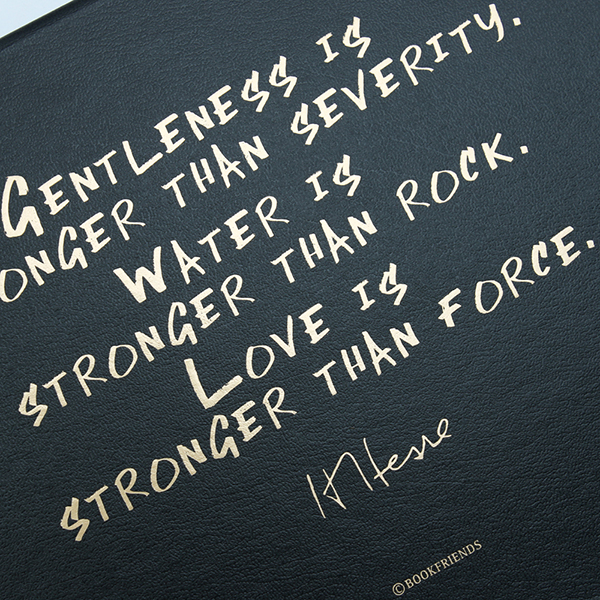 GENTLENESS IS
ONGER THAN SEVERITY.
WATER IS
STRONGER THAN ROCK.
LOVE IS
STRONGER THAN FORCE.
H Hesse
©BOOKFRIENDS